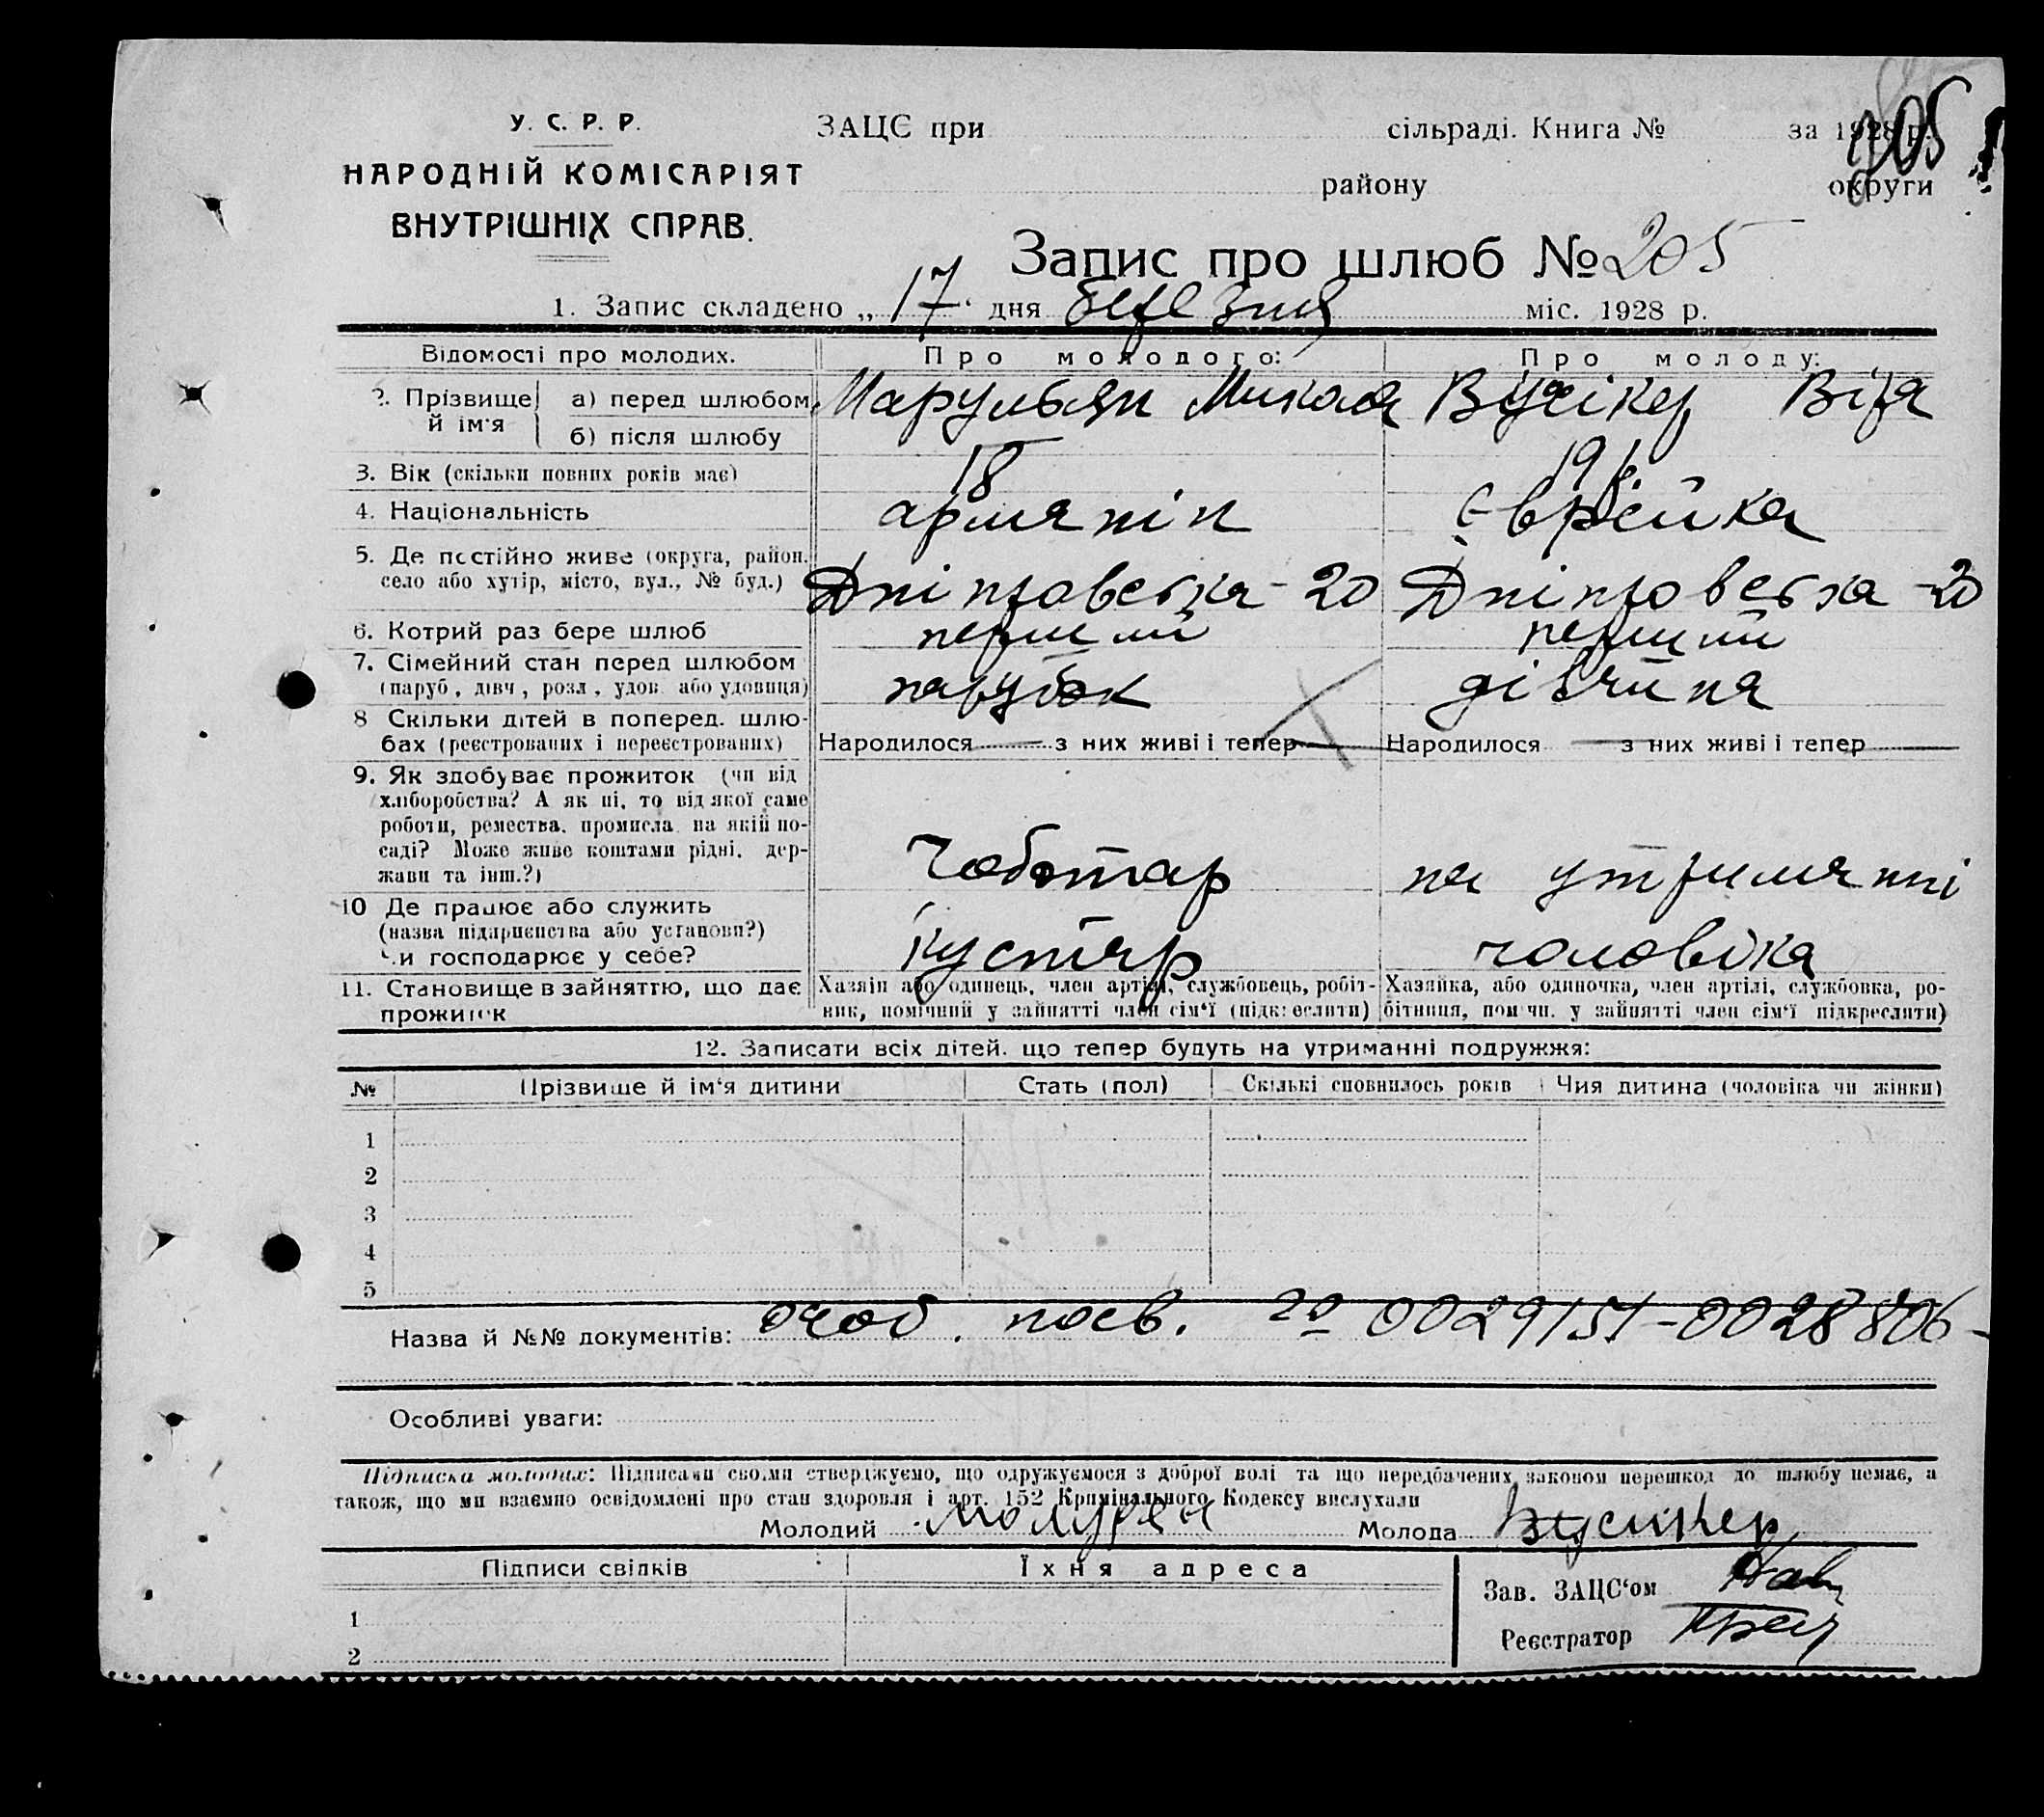 У. С. Р. Р.
НАРОДНІЙ КОМІСАРІЯТ
ВНУТРІШНІХ СПРАВ.
ЗАЦС при сільраді. Книга № за 1928 р.
205
району округи
Запис про шлюб № 205
1. Запис складено „ 17 " дня березня міс. 1928 р.
Відомості про молодих. Про молодого: Про молоду:
2. Прізвище й ім'я а) перед шлюбом Микола Віра
б) після шлюбу
3. Вік (скільки повних років має) 18 19
4. Національність армянін Єврейка
5. Де постійно живе (округа, район,
село або хутір, місто, вул., № буд.) Дніпровська - 20 Дніпровська - 20
6. Котрий раз бере шлюб перший перший
7. Сімейний стан перед шлюбом
(паруб, дівч, розл, удов. або удовиця) парубок дівчина
8 Скільки дітей в поперед. шлю-
бах (реєстрованих і нереєстрованих) Народилося з них живі і тепер Народилося з них живі і тепер
9. Як здобуває прожиток (чи від
хліборобства? А як ні, то від якої саме
роботи, ремества, промисла на якій по-
саді? Може живе коштами рідні, дер-
жави та інш.?) Чоботар на утриманні
10 Де працює або служить
(назва підприємства або установи?)
Чи господарює у себе? кустар чоловіка
11. Становище в зайняттю, що дає
прожиток
Хазяін або одинець, член артілі, службовець, робіт-
ник, помічний у зайнятті член сім'ї (підкреслити)
Хазяйка, або одиночка, член артілі, службовка, ро-
бітниця, помічн. у зайнятті член сім'ї підкреслити)
12. Записати всіх дітей, що тепер будуть на утриманні подружжя:
№ Прізвище й ім'я дитини Стать (пол) Скількі сповнилось років Чия дитина (чоловіка чи жінки)
1
2
3
4
5
Назва й №№ документів: посв. 0028806
Особливі уваги:
Підписка молодих: Підписами своїми стверджуємо, що одружуємося з доброї волі та що передбачених законом перешкод до шлюбу немає, а
також, що ми взаємно освідомлені про стан здоровля і арт. 152 Кримінального Кодексу вислухали
Молодий Молода
Підписи свідків Їхня адреса
Зав. ЗАЦС'ом
1
Реєстратор
2